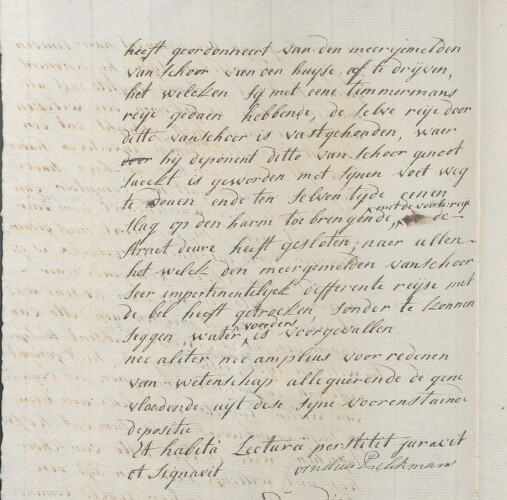 heeft geordonneert van den meergemelden
van schoor van den huijse af te drijven,
het welcken sij met eene timmermans
reije gedaen hebbende, de selve reije door
ditto van schoor is vastgehouden, waer
door hij deponent ditto van schoor genoot
saeckt is geworden met synen voet weg
te douen ende ten selven tijde eenen
slag op den harm toebrengende, met de voors. reije de
straet deure heeft gesloten; naer allen
het welck den meergemelden van schoor
seer impertinentelijck differente reijse met
de bel heeft getrocken sonder te konnen
seggen water voorders is voorgevallen.
nec aliter nec amplius voor redenen
van wetenschap allequerende de gene
vloeidende uijt dese syne voorenstaende
depositie
Et habitâ Lecturâ perstitit juravit
et signavit Pelckmans